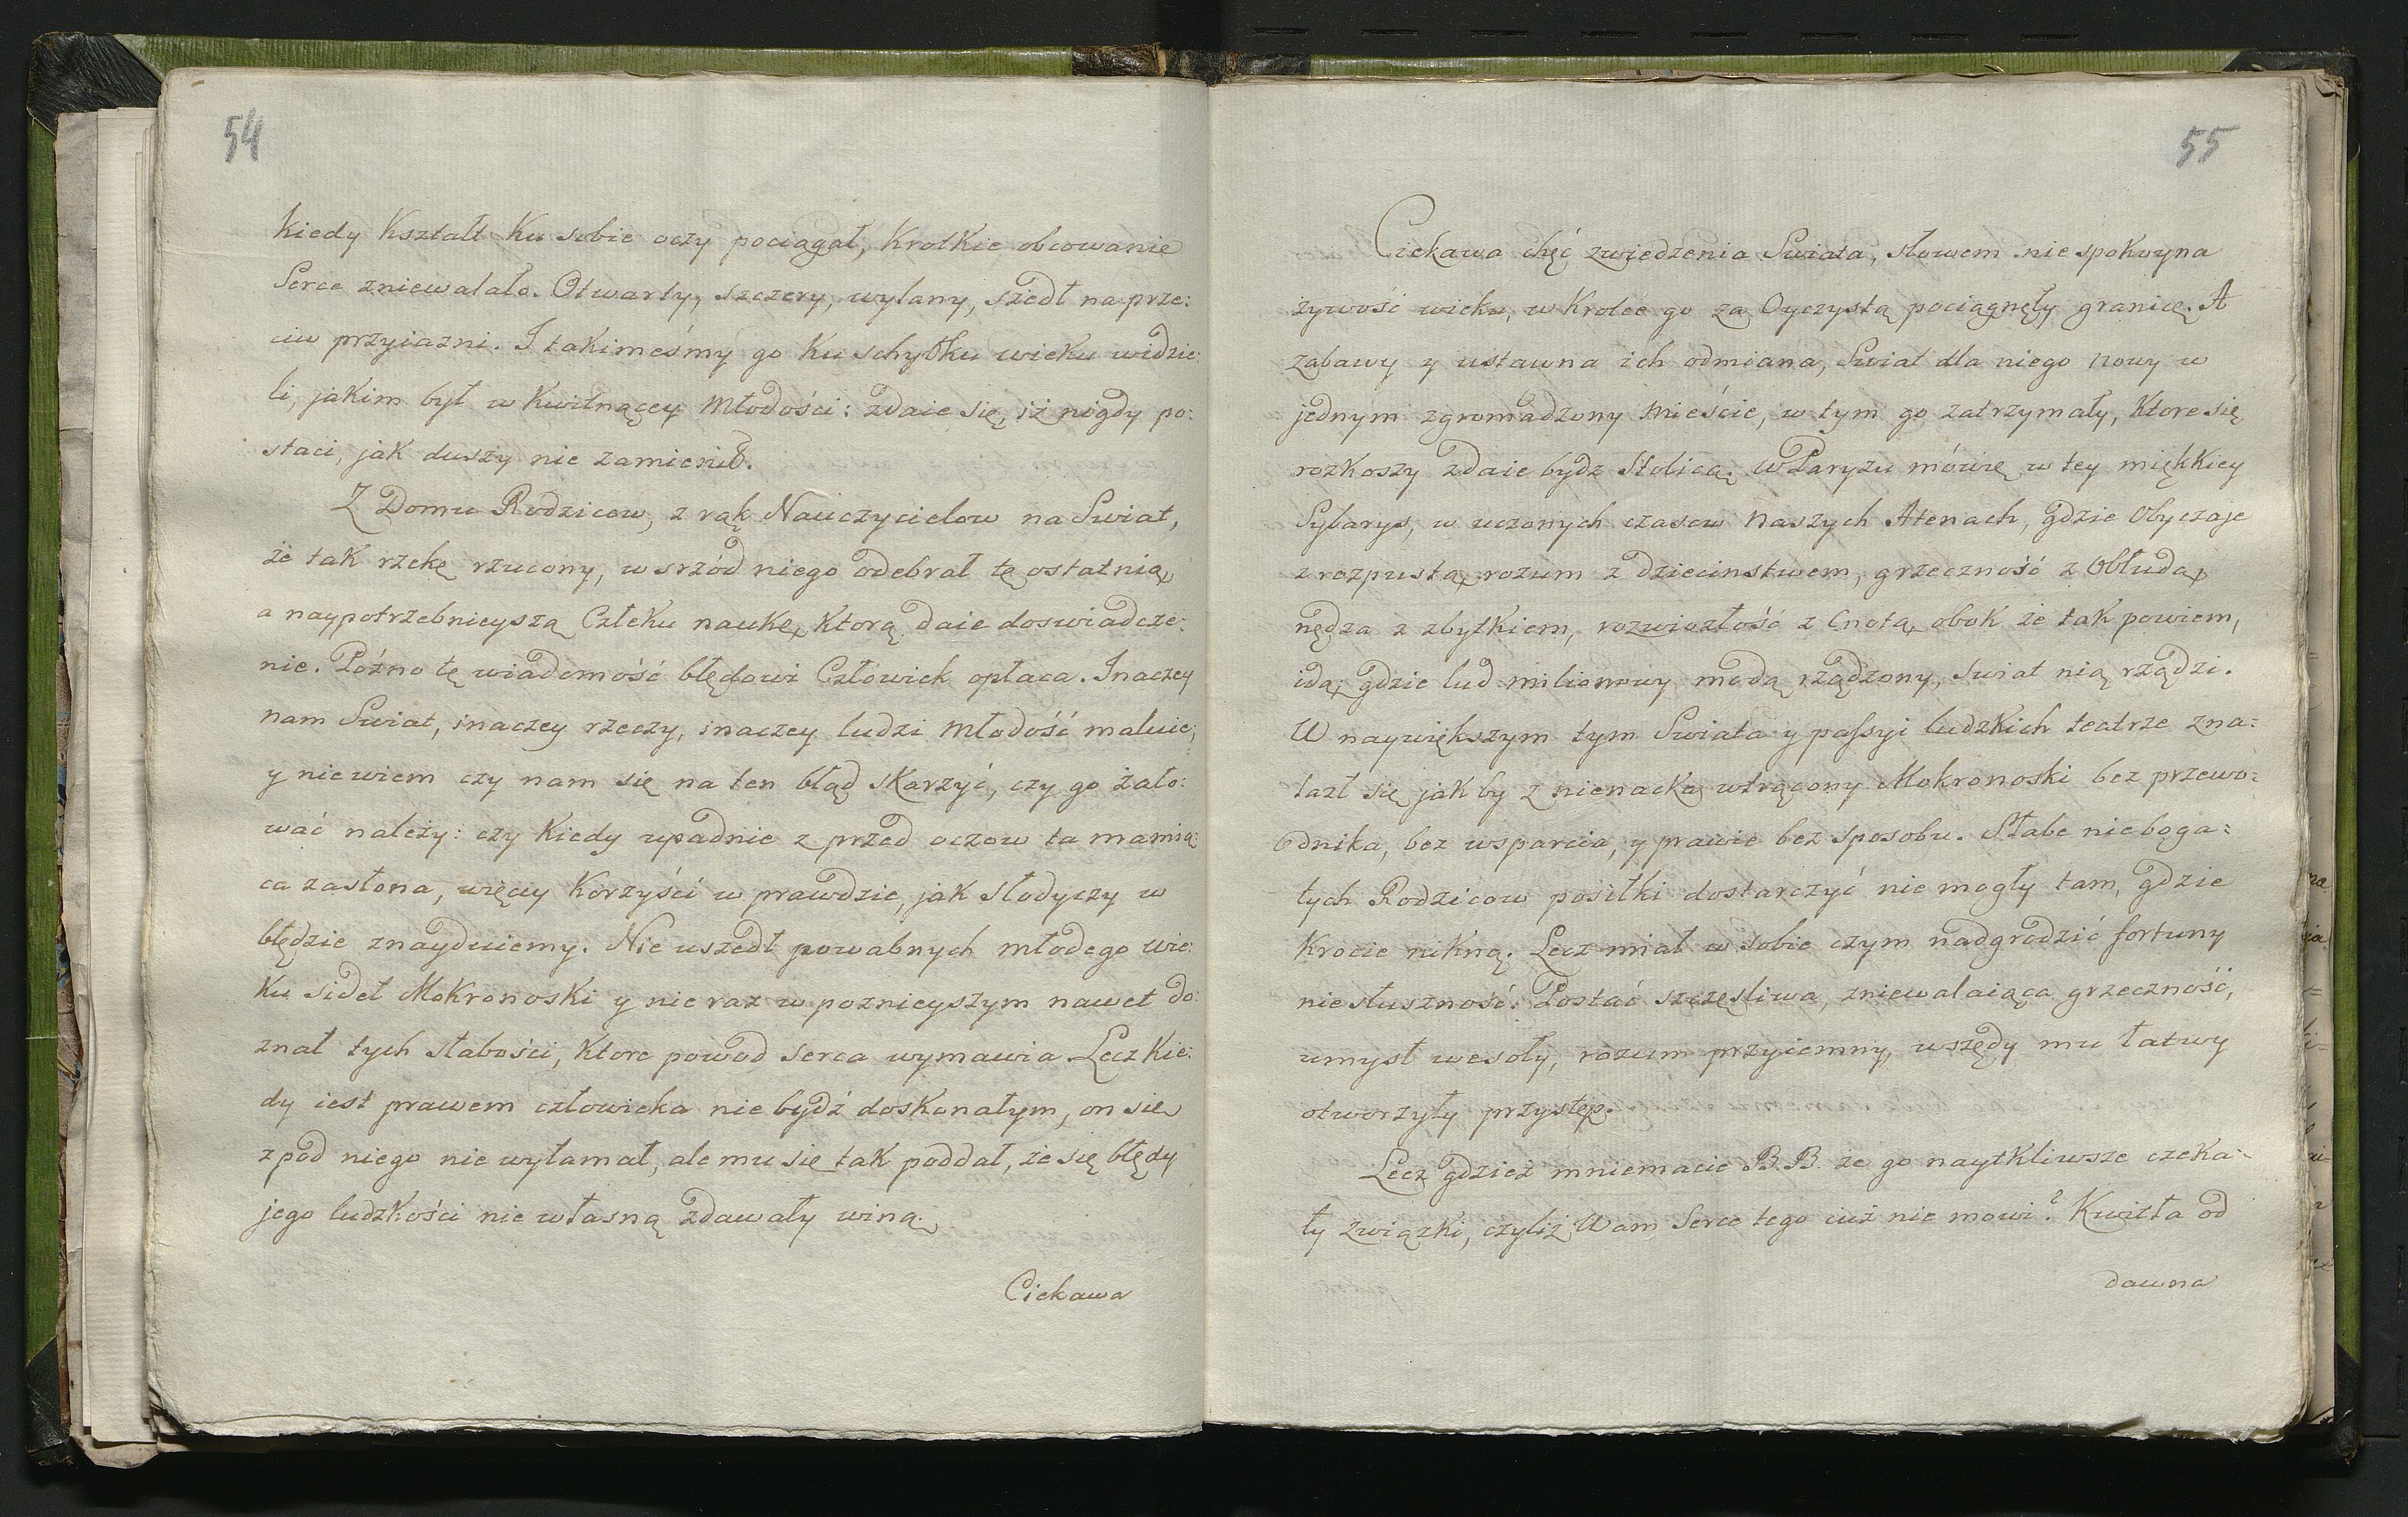 54
kiedy Kształt Ku sobie oczy pociągał, Krotkie obcowanie
Serce zniewalało. Otwarty, szczery, wylany, szedł naprze:
ciw przyiazni. I takimeśmy go Ku schyłku wieku widzie:
li, jakim był w Kwitnącey Młodości: zdaie się, iż nigdy po:
staci, jak duszy nie zamienił.
Z Domu Rodzicow, z rąk Nauczycielow na Swiat,
że tak rzekę rzucony, wsrzód niego odebrał tę ostatnią,
a naypotrzebnieyszą Człeku naukę, Ktorą daie doswiadcze:
nie. Poźno tę wiadomość błędowi Człowiek opłaca. Inaczey
nam Swiat, inaczey rzeczy, inaczey ludzi Młodość maluie;
y niewiem czy nam się na ten błąd skarzyć, czy go żało:
wać należy: czy Kiedy upadnie z przed oczow ta mamią:
ca zasłona, więcey Korzyści w prawdzie, jak słodyczy w
błędzie znayduiemy. Nie uszedł powabnych młodego wie:
Ku sideł Mokronoski y nie raz w poznieyszym nawet do:
znał tych słabości, Ktore powod serca wymawia Lecz Kie:
dy iest prawem człowieka nie bydź doskonałym, on się
z pod niego nie wyłamał, ale mu się tak poddał, że się błędy
jego ludzkości nie własną zdawały winą.
Ciekawa
55
Ciekawa chęć zwiedzenia Swiata, słowem niespokoyna
żywość wieku, w Krotce go za Oyczystą pociągnęły granicę. A
zabawy y ustawna ich odmiana, Swiat dla niego nowy w
jednym zgromadzony Mieście, w tym go zatrzymały, Ktore się
rozkoszy zdaie bydz Stolicą. W Paryzu mówię, w tey miękkiey
Sybarys, w uczonych czasow naszych Atenach, gdzie Obyczaje
z rozpustą, rozum z dziecinstwem, grzeczność z Obłudą,
nędza z zbytkiem, rozwiozłość z Cnotą, obok że tak powiem,
idą, gdzie lud milionowy modą rządzony, swiat nią rządzi.
W naywiększym tym Swiata y passyi ludzkich teatrze zna:
lazł się jakby z nienacka wtrącony Mokronoski bez przewo:
dnika, bez wsparcia, y prawie bez sposobu. Słabe nieboga:
tych Rodzicow posiłki dostarczyć nie mogły tam, gdzie
Krocie nikną. Lecz miał w sobie czym nadgrodzić fortuny
niesłuszność: Postać szczęsliwa, zniewalaiąca grzeczność,
umysł wesoły, rozum przyiemny, wszędy mu łatwy
otworzyły przystęp.
Lecz gdzież mniemacie B.B. że go naytkliwsze czeka:
ły związki, czyliż Wam Serce tego iuż nie mowi? Kwitła od
dawna